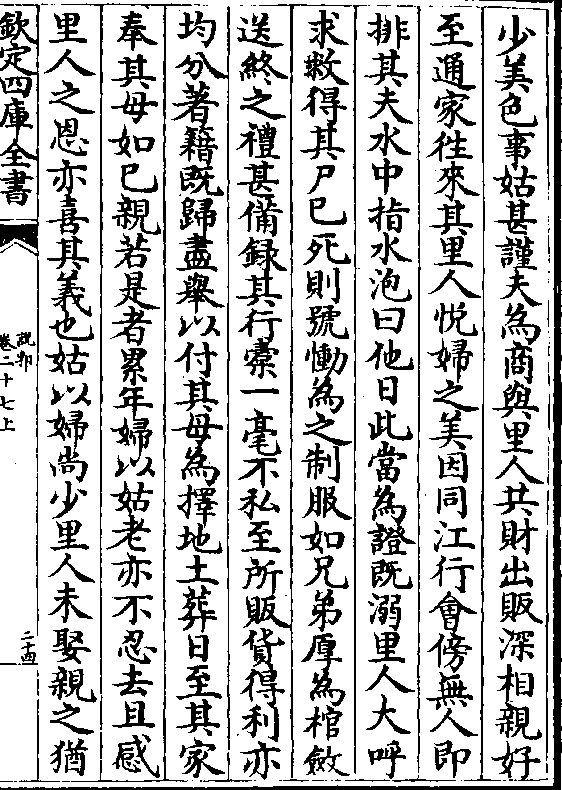 少美色事姑甚謹夫為商與里人共財出販深相親好
至通家往來其里人悅婦之美因同江行會傍無人即
排其夫水中指水泡曰他日此當為證既溺里人大呼
求救得其尸已死則號慟為之制服如兄弟厚為棺斂
送終之禮甚備録其行槖一毫不私至所販貨得利亦
均分著籍既歸盡舉以付其母為擇地土葬日至其家
奉其母如已親若是者累年婦以姑老亦不忍去且感
里人之恩亦喜其義也姑以婦尚少里人未娶親之猶
欽定四庫全書
說郛
卷二十七上
二十四